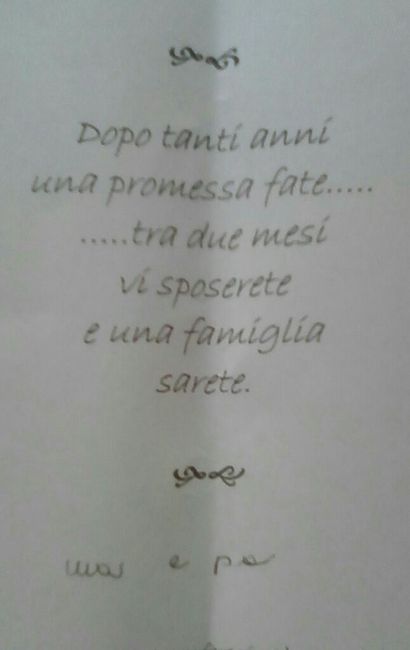 Dopo tanti anni
una promessa fate.....
.....tra due mesi
vi sposerete
e una famiglia
sarete.
ma e pa